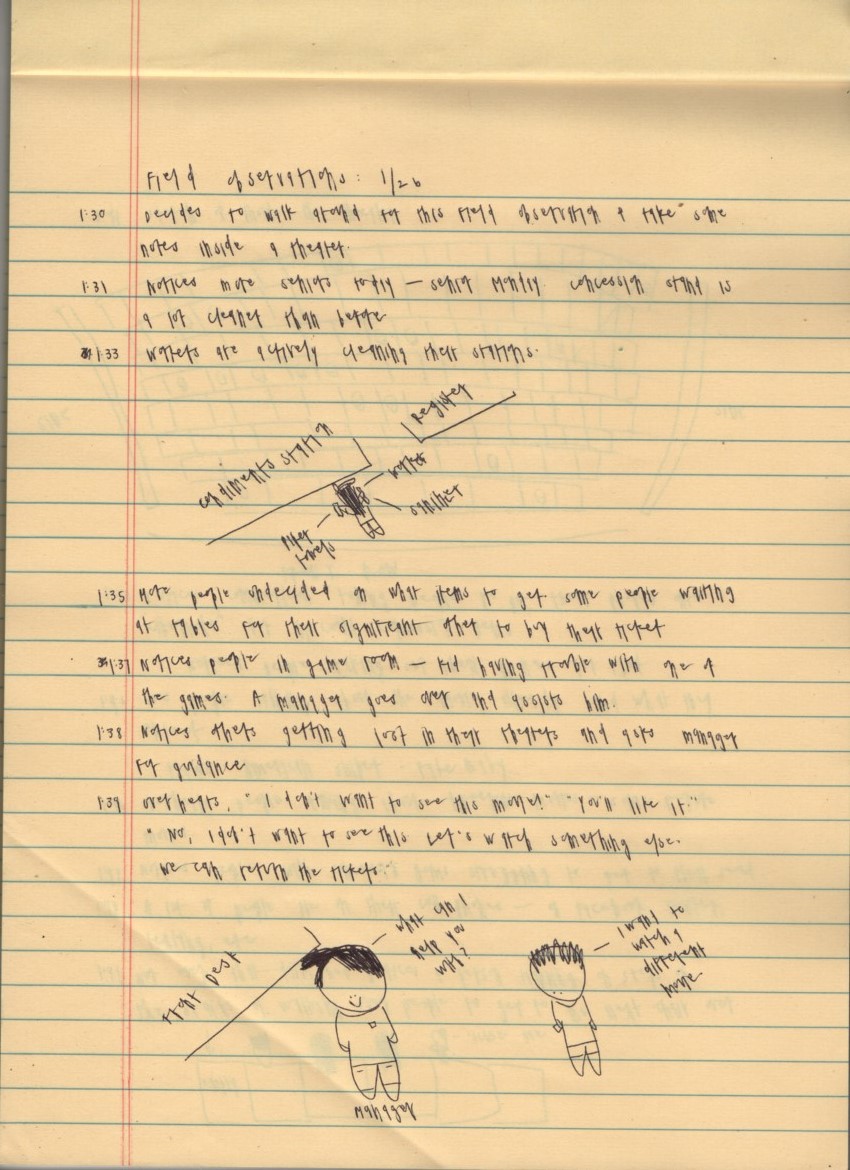 Field observations: 1/26
1:30 Decides to walk around for this field observation & take some
notes inside a theater.
1:31 Notices more seniors today — senior Monday. concession stand is
a lot cleaner than before
1:33 workers are actively cleaning their stations.
Register
condiments station
worker
sanitizer
paper
towels
1:35 More people undecided on what items to get. some people waiting
at tables for their significant other to buy their ticket
1:37 Notices people in game room — kid having trouble with one of
the games. A manager goes over and assists him.
1:38 Notices others getting lost in their theaters and asks manager
for guidance
1:39 overhears, "I don't want to see this movie!" "You'll like it."
"No, I don't want to see this. Let's watch something else.
We can return the tickets."
Front Desk
what can I
help you
with?
I want to
watch a
different
movie
Manager